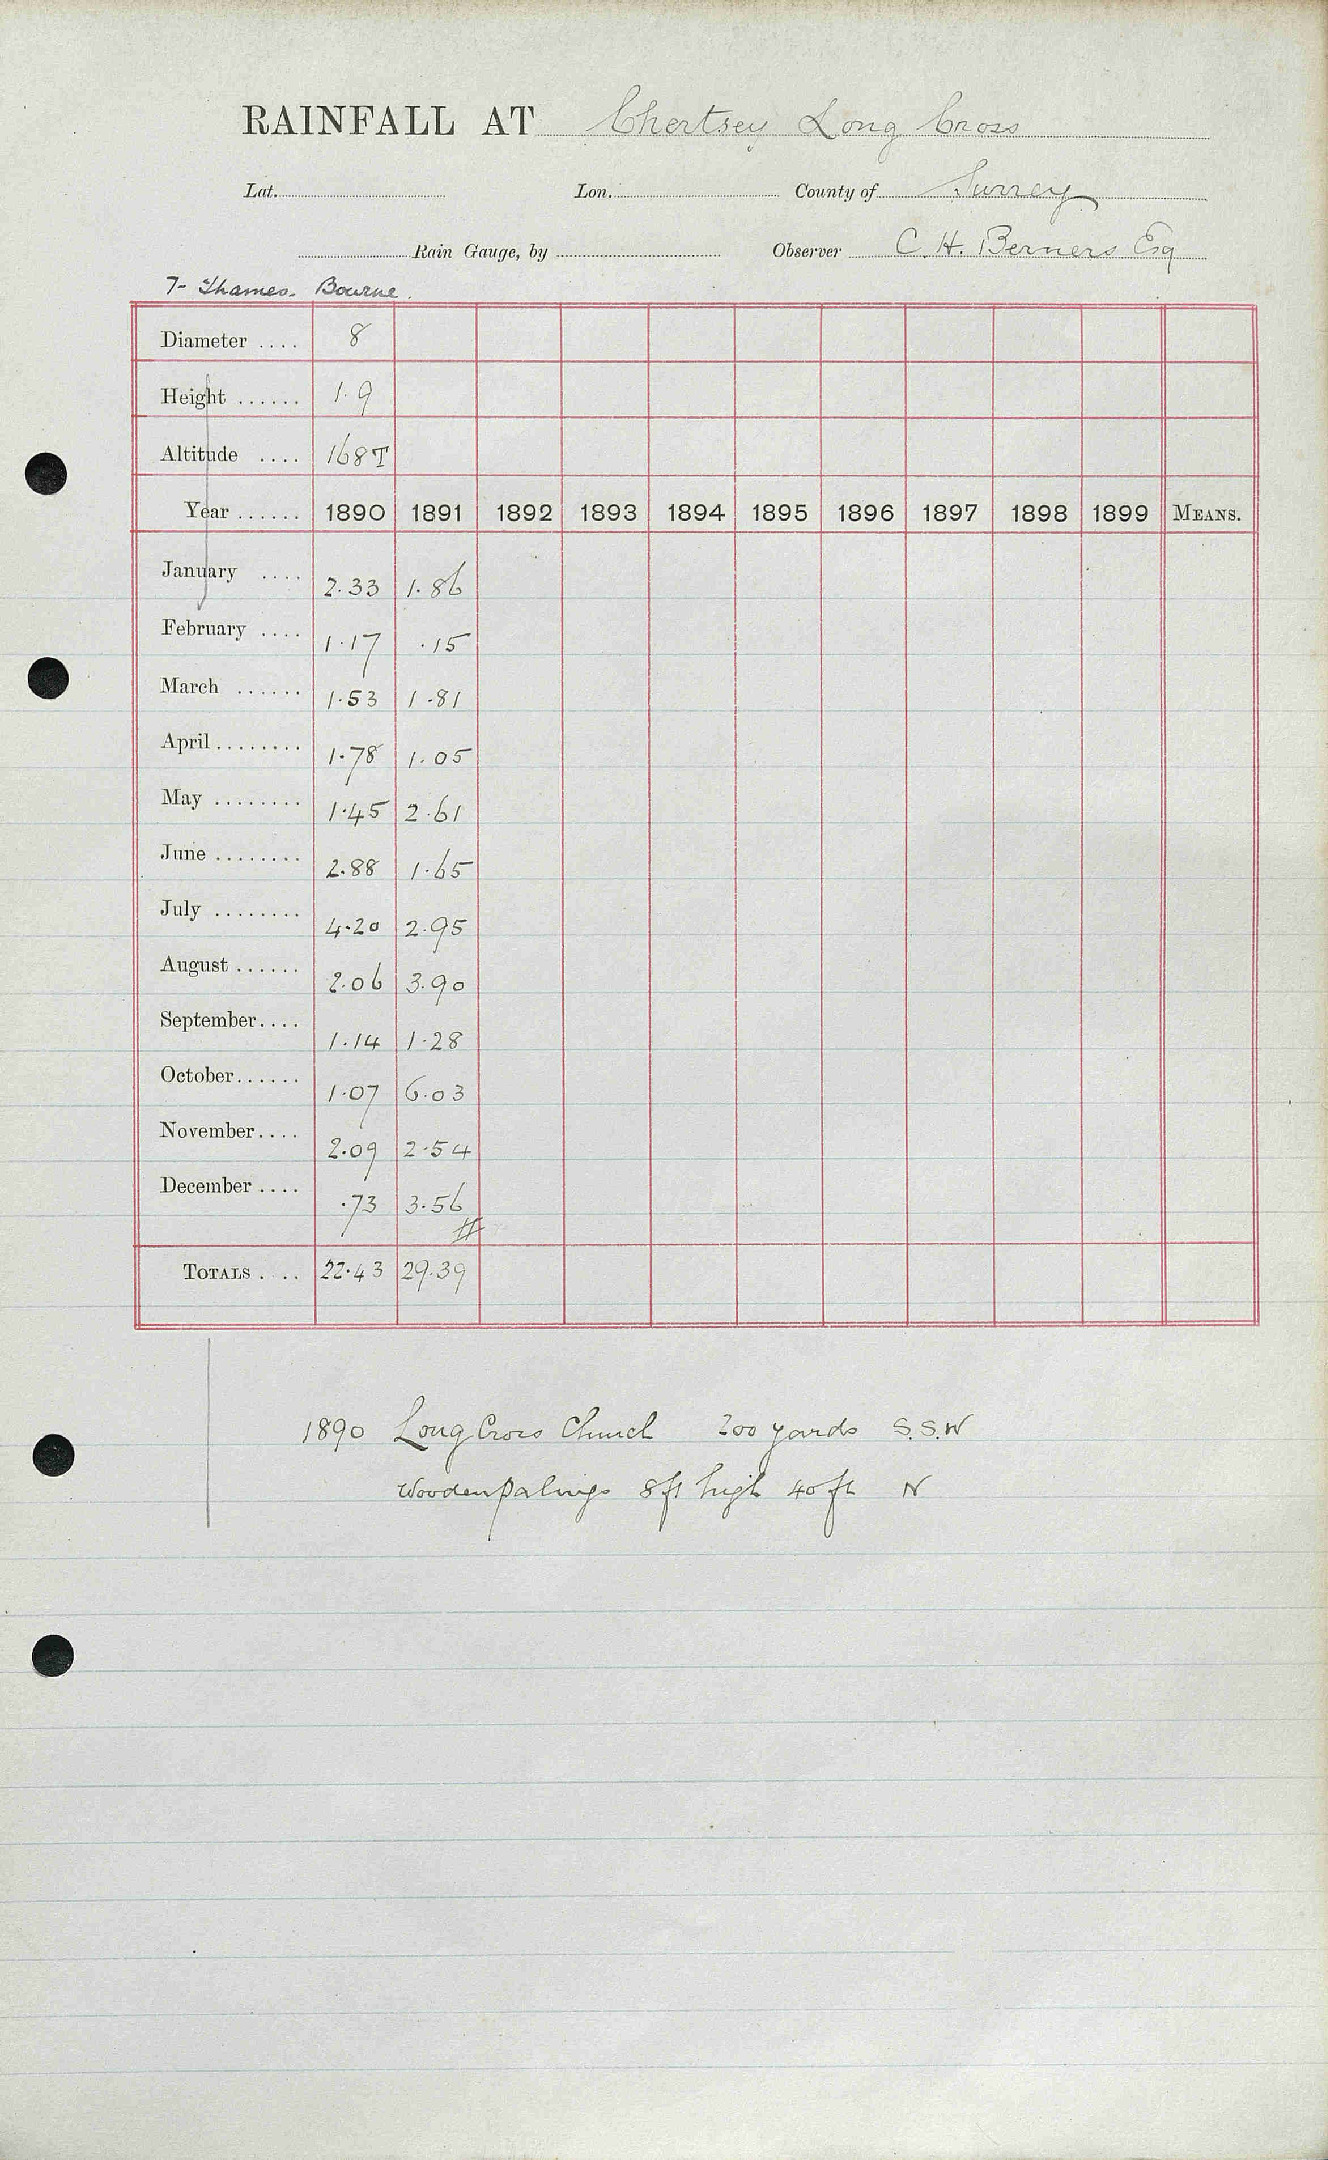 RAINFALL AT Chertsey Long Cross
Lat. Lon. County of Surrey
Rain Gauge, by Observer C. H. Berners Esq
7- Thames. Bourne.
Diameter .... 8
Height ...... 1.9
Altitude .... 168T
Year ...... 1890 1891 1892 1893 1894 1895 1896 1897 1898 1899 MEANS.
January .... 2.33 1.86
February .... 1.17 .15
March ...... 1.53 1.81
April ........ 1.78 1.05
May ........ 1.45 2.61
June ........ 2.88 1.65
July ........ 4.20 2.95
August ...... 2.06 3.90
September.... 1.14 1.28
October...... 1.07 6.03
November.... 2.09 2.54
December .... .73 3.56
#
TOTALS .... 22.43 29.39
1890 Long Cross Church 200 yards S.S.W
Wooden palings 8ft high 40 ft N